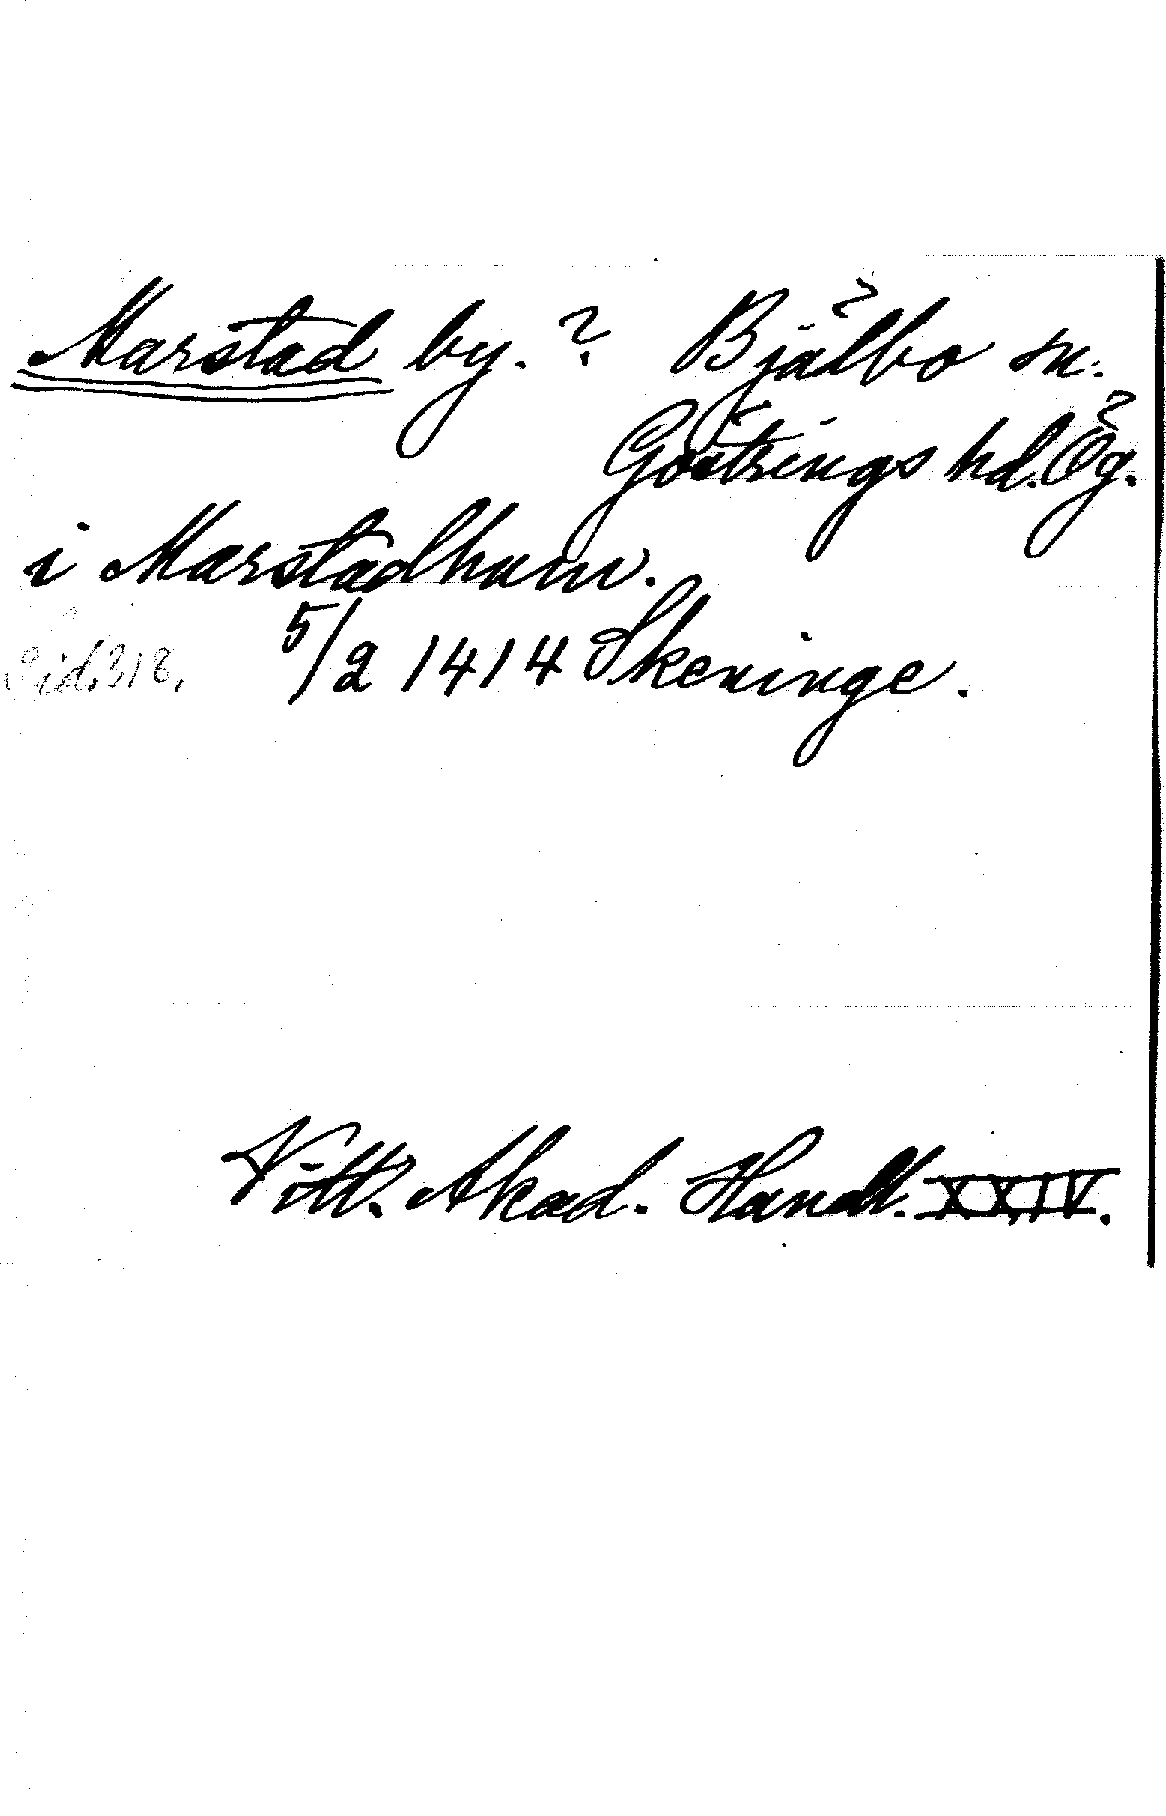 Marstad by.? Bjälbo sn.
Göstrings hd. Ög.
i Marstadhum.
Sid. 318. 5/2 1414 Skeninge.
Vitt. Akad. Handl. XXIV.